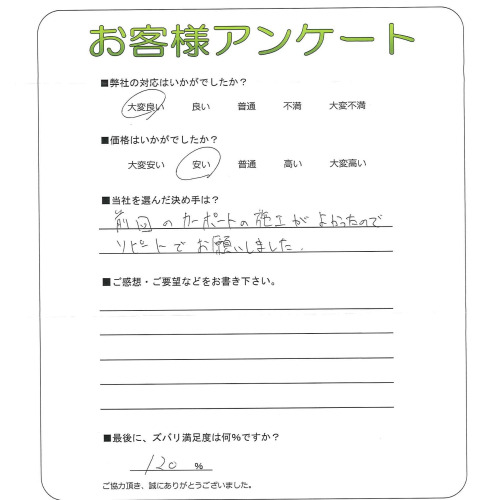 お客様アンケート
■弊社の対応はいかがでしたか？
大変良い 良い 普通 不満 大変不満
■価格はいかがでしたか？
大変安い 安い 普通 高い 大変高い
■当社を選んだ決め手は？
前回のカーポートの施工がよかったので
リピートでお願いしました.
■ご感想・ご要望などをお書き下さい。
■最後に、ズバリ満足度は何%ですか？
120 %
ご協力頂き、誠にありがとうございました。